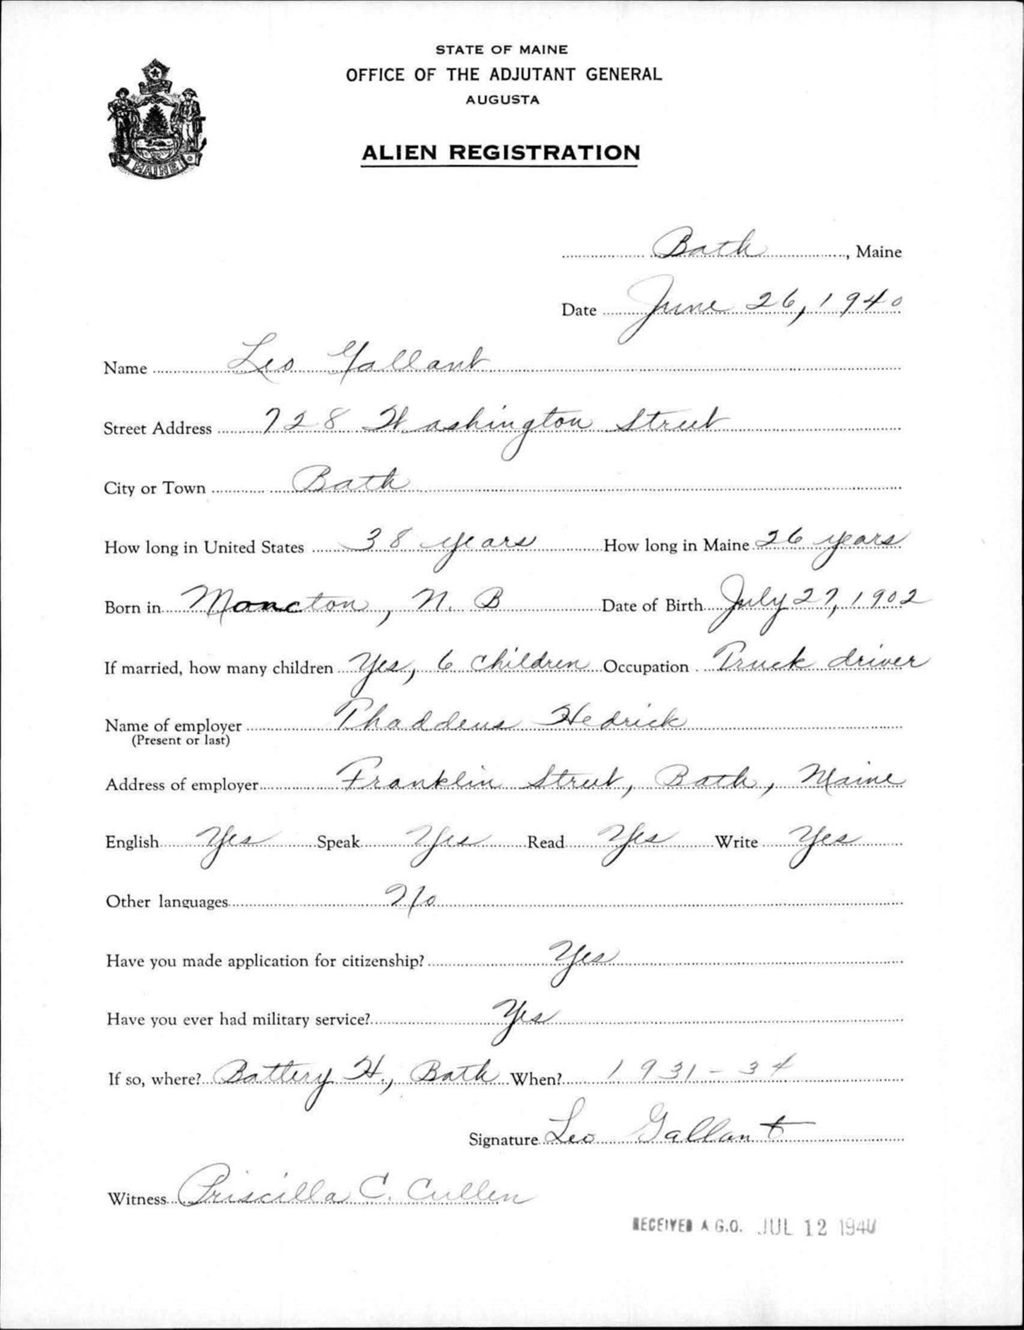 STATE OF MAINE
OFFICE OF THE ADJUTANT GENERAL
AUGUSTA
ALIEN REGISTRATION
MAINE
Bath, Maine
Date June 26, 1940
Name Leo Gallant
Street Address 728 Washington Street
City or Town Bath
How long in United States 38 years How long in Maine 26 years
Born in Moncton, N. B Date of Birth July 27, 1902
If married, how many children Yes, 6 children Occupation Truck driver
Name of employer Thaddeus Hedrick
(Present or last)
Address of employer Franklin Street, Bath, Maine
English Yes Speak Yes Read Yes Write Yes
Other languages No
Have you made application for citizenship? Yes
Have you ever had military service? Yes
If so, where? Battery H., Bath When? 1931-34
Signature Leo Gallant
Witness Priscilla C. Cullen
RECEIVED A.G.O. JUL 12 1940